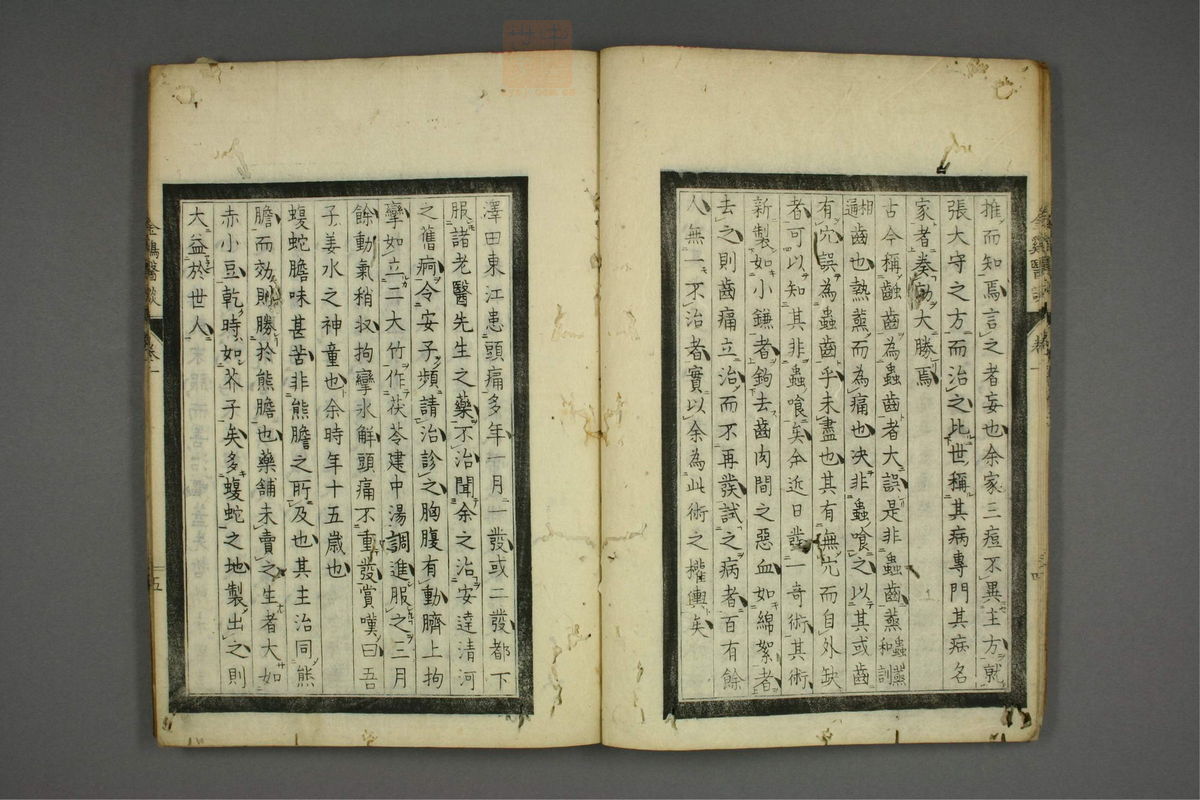 推而知焉言之者妄也余家三痘不異主方就
張大守之方而治之此世稱其病專門其病名
家者奏効大勝焉
古今稱齲齒為蟲齒者大誤是非蟲齒蒸蟲蒸和訓
相通齒也熱蒸而為痛也决非蟲喰之以其或齒
有穴誤為蟲齒乎未盡也其有無穴而自外缺
者可以知其非蟲喰矣余近日發一奇術其術
新製如小鎌者鉤去齒肉間之惡血如綿絮者
去之則齒痛立治而不再發試之病者百有餘
人無一不治者實以余為此術之權輿矣
金鷄醫談 卷一 四
澤田東江患頭痛多年一月一發或二發都下
服諸老醫先生之藥不治聞余之治安達清河
之舊痾令安子頻請治診之胸腹有動臍上拘
攣如立二大竹作茯苓建中湯調進服之三月
餘動氣稍收拘攣氷解頭痛不重發賞嘆曰吾
子姜水之神童也余時年十五歲也
蝮蛇膽味甚苦非熊膽之所及也其主治同熊
膽而効則勝於熊膽也藥舖未賣之生者大如
赤小豆乾時如芥子矣多蝮蛇之地製出之則
大益於世人
金鷄醫談 卷一 五